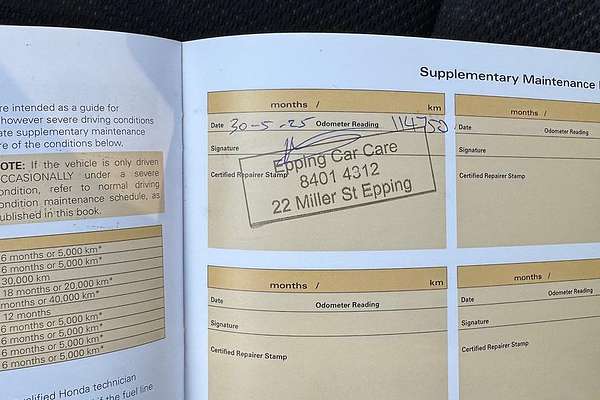 re intended as a guide for
however severe driving conditions
ate supplementary maintenance
re of the conditions below.
OTE: If the vehicle is only driven
CCASIONALLY under a severe
ondition, refer to normal driving
ondition maintenance schedule, as
ublished in this book.
6 months or 5,000 km*
6 months or 5,000 km*
30,000 km
18 months or 20,000 km*
months or 40,000 km*
12 months
6 months or 5,000 km*
6 months or 5,000 km*
6 months or 5,000 km*
6 months or 5,000 km*
alified Honda technician
if the fuel line
Supplementary Maintenance
months / km
Date 30-5-25 Odometer Reading 114750
Signature
Certified Repairer Stamp
Epping Car Care
8401 4312
22 Miller St Epping
months /
Date Odometer Reading
Signature
Certified Repairer Stamp
months / km
Date Odometer Reading
Signature
Certified Repairer Stamp
months /
Date Odometer Reading
Signature
Certified Repairer Stamp